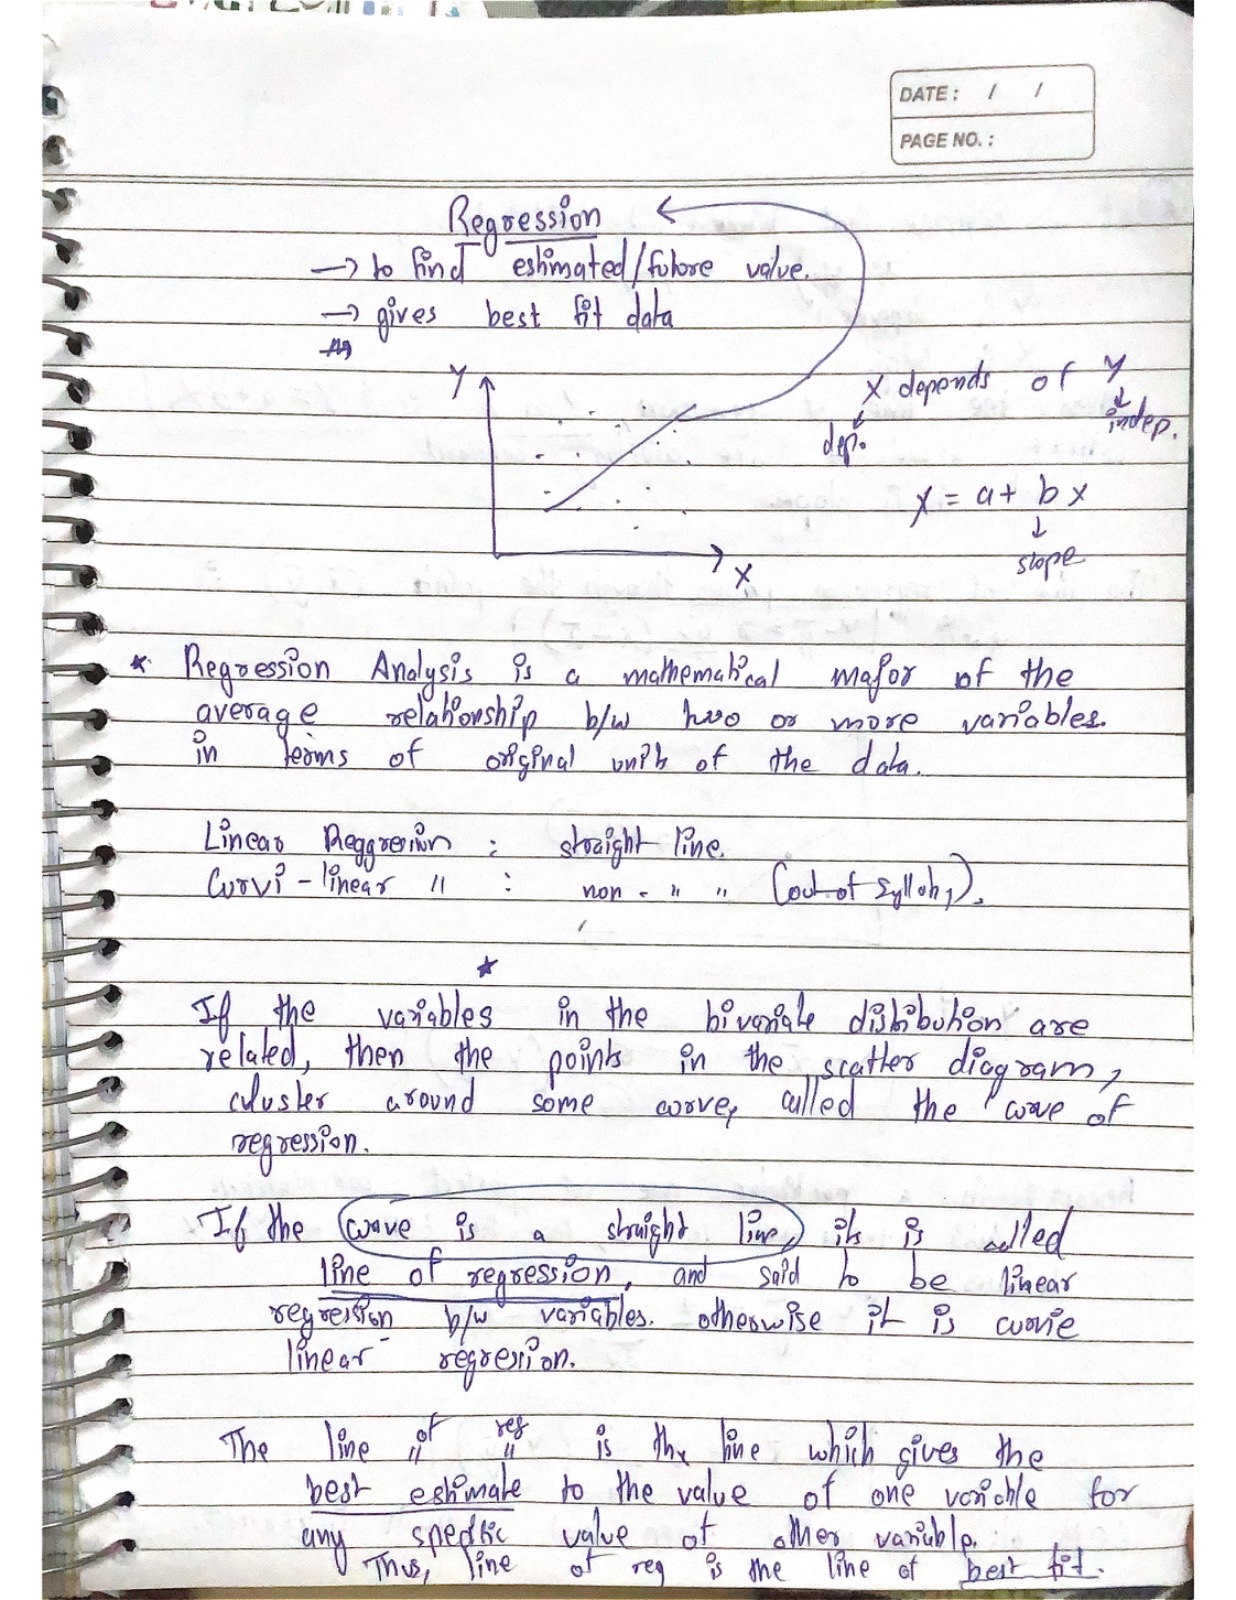 DATE: / /
PAGE NO. :
Regression
→ to find estimated/future value.
→ gives best fit data
Y
X
X depends of Y
dep.
indep.
Y = a + b x
slope
* Regression Analysis is a mathematical major of the
average relationship b/w two or more variables.
in terms of original units of the data.
Linear Reggression : straight line.
Curvi - linear " : non - " " (out of syllabus).
*
If the variables in the bivariate distribution are
related, then the points in the scatter diagram,
cluster around some curve, called the curve of
regression.
If the curve is a straight line, its is called
line of regression, and said to be linear
regression b/w variables. otherwise it is curvie
linear regression.
The line of reg is the line which gives the
" "
best estimate to the value of one variable for
any specific value of other variable.
Thus, line of reg is the line of best fit.